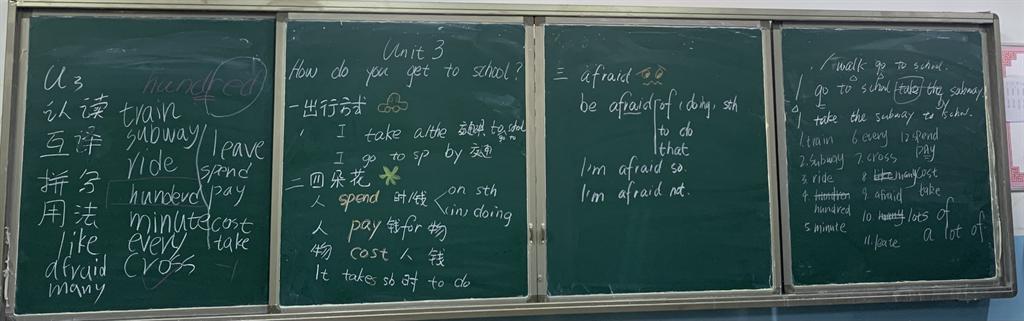 U3
hundred
认读 train
互译 subway
ride
leave
spend
拼写 hunderd
pay
用法 minute cost
like every take
afraid cross
many
Unit 3
How do you get to school?
一 出行方式
I take a/the 交通 to
I go to sp by 交通
二 四朵花
人 spend 时/钱 on sth
(in) doing
人 pay 钱 for 物
物 cost 人 钱
It takes sb 时 to do
三 afraid
be afraid of doing sth
to do
that
I'm afraid so.
I'm afraid not.
I walk go to school.
I go to school take the subway
I take the subway to school.
1. train 6 every 12 spend
2. subway 7. cross pay
3. ride 8 like many cost
4. hundred 9. afraid take
hundred 10. lots of
5. minute 11. leave a lot of